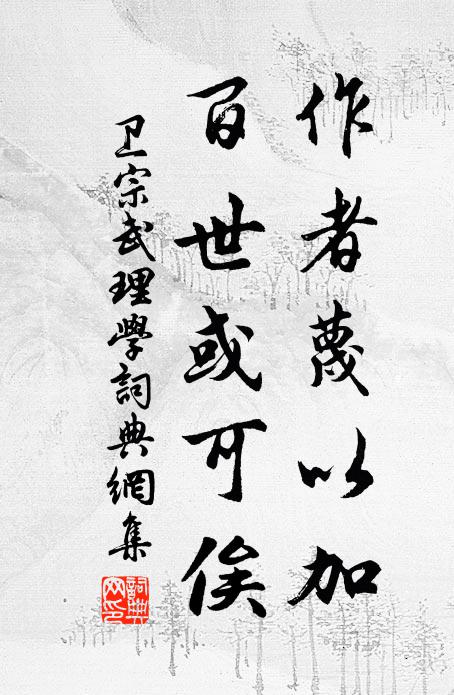 作者蔑以加
百世或可俟
卫宗武理學詞典網集
詞典网印